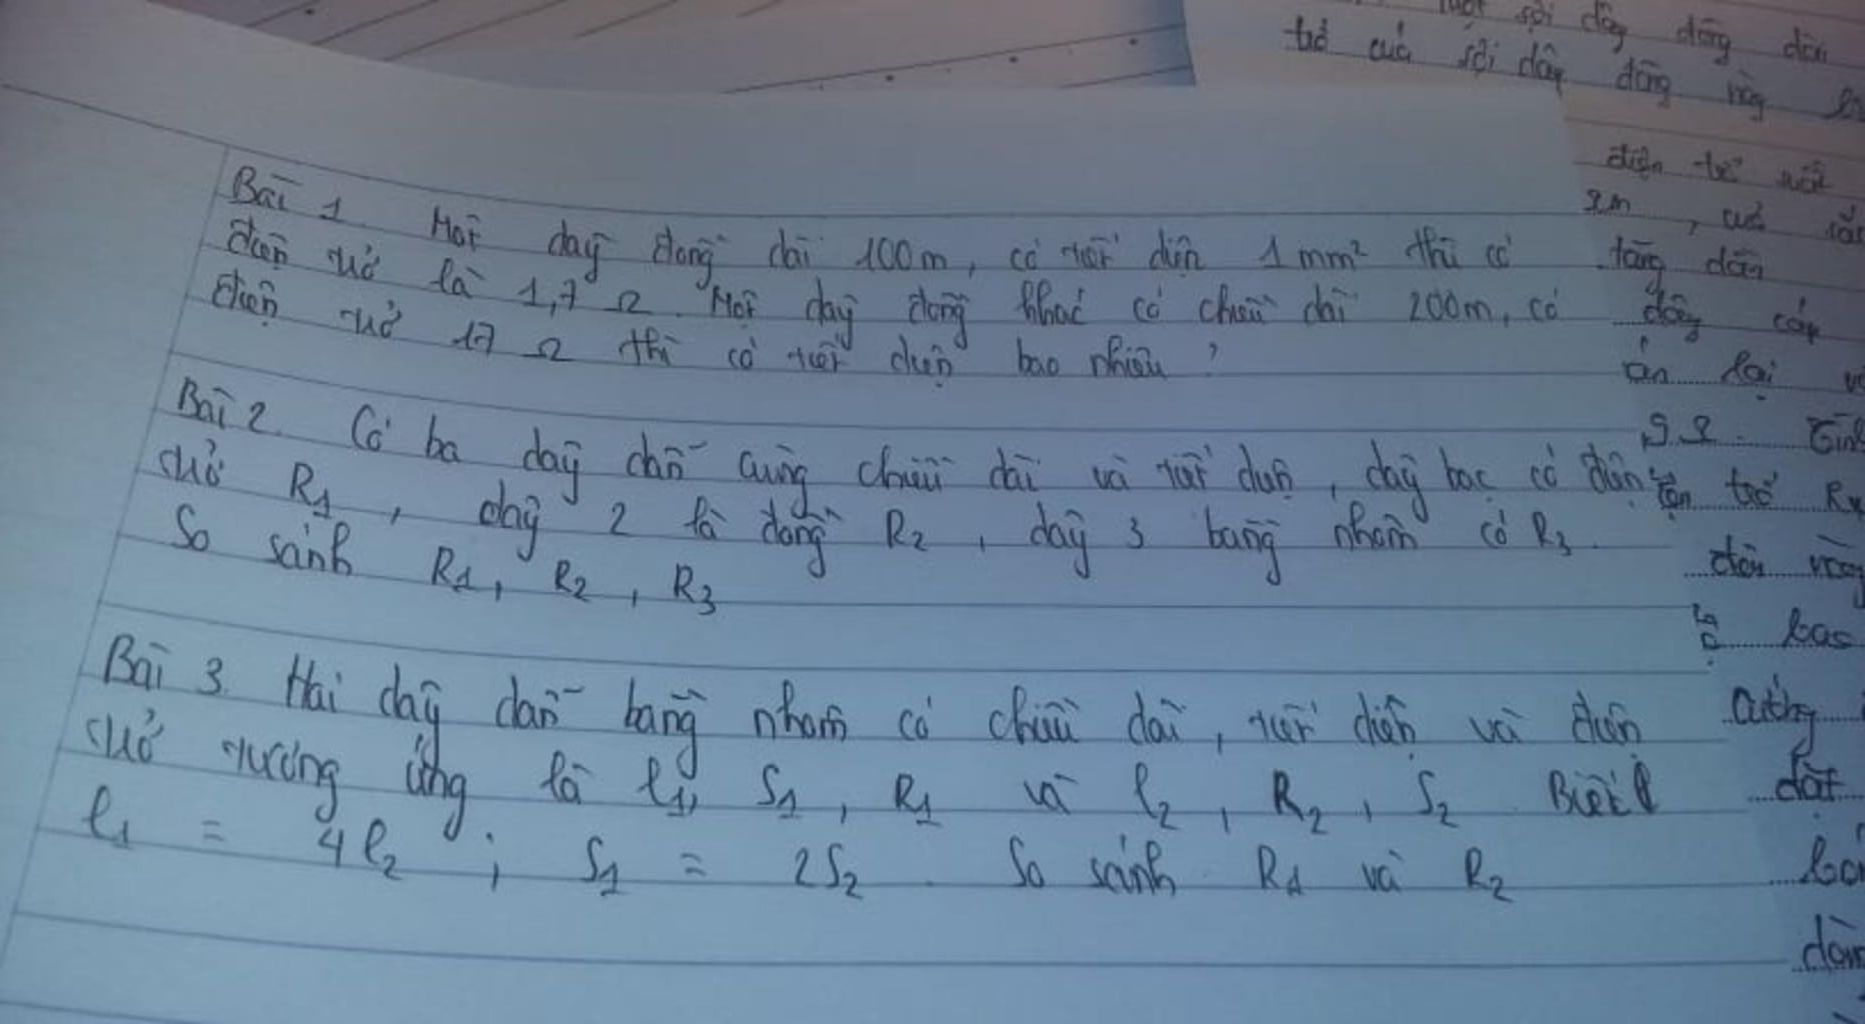 Bài 1 Một dây đồng dài 100m, có tiết diện 1 mm² thì có
điện trở là 1,7 Ω. Một dây đồng khác có chiều dài 200m, có
điện trở 17 Ω thì có tiết diện bao nhiêu?
Bài 2. Có ba dây dẫn cùng chiều dài và tiết diện, dây bạc có điện
trở R₁, dây 2 là đồng R₂, dây 3 bằng nhôm có R₃.
So sánh R₁, R₂, R₃
Bài 3. Hai dây dẫn bằng nhôm có chiều dài, tiết diện và điện
trở tương ứng là l₁, S₁, R₁ và l₂, R₂, S₂. Biết
l₁ = 4l₂ ; S₁ = 2S₂. So sánh R₁ và R₂
sợi dây đồng
trở của sợi dây đồng này
điện trở
2m
tăng dần
dây cáp
lại
trở
cường
đặt